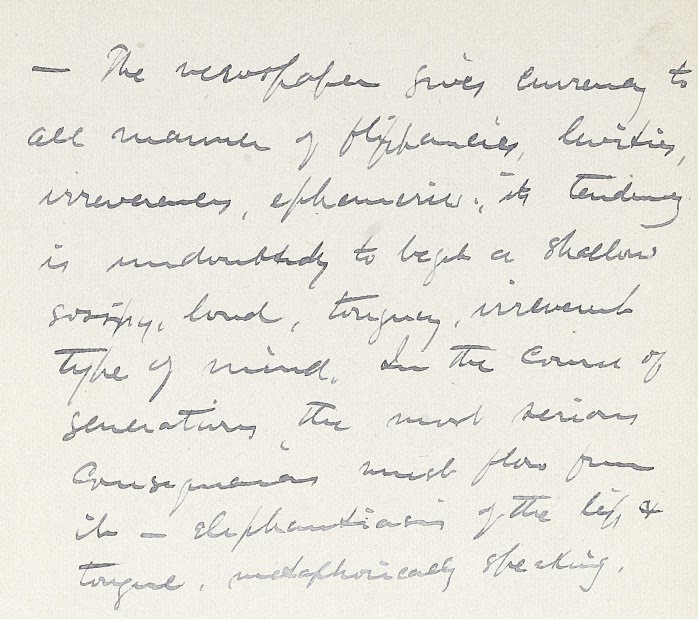 — The newspaper gives currency to
all manner of flippancies, levities,
irreverences, ephemeris; its tendency
is undoubtedly to beget a shallow
gossipy, loud, tonguey, irreverent
type of mind. In the course of
generations the most serious
consequences must flow from
it — elephantiasis of the lip &
tongue, metaphorically speaking.